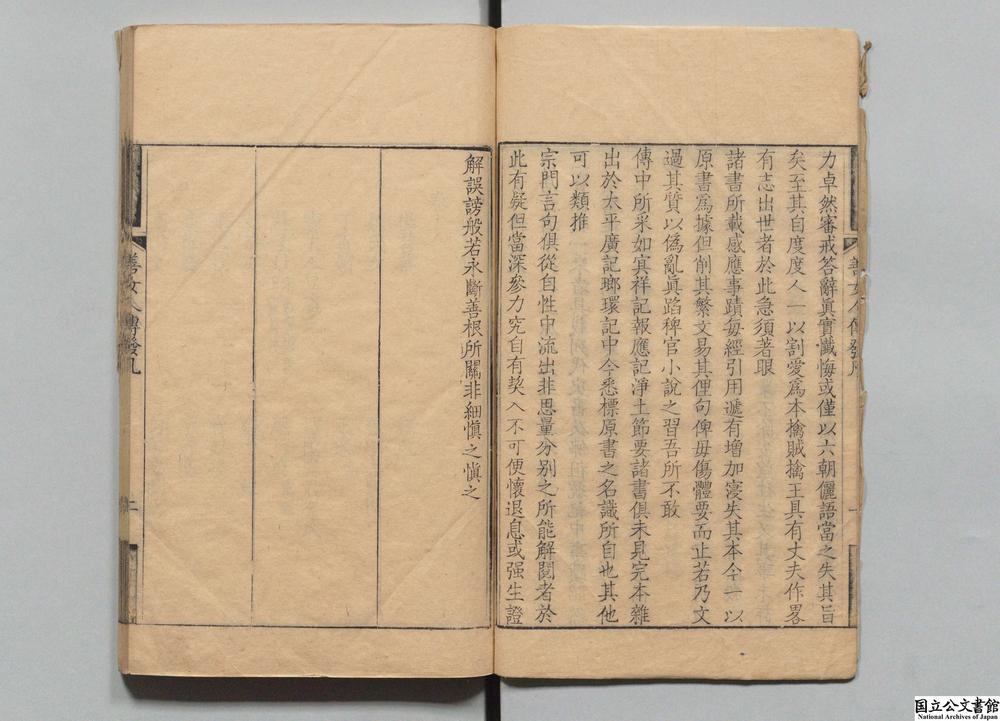 力卓然審戒答辭眞實懺悔或僅以六朝儷語當之失其旨
矣至其自度度人一以割愛爲本擒賊擒王具有丈夫作畧
有志出世者於此急須著眼
諸書所載感應事蹟每經引用遞有增加寖失其本今一以
原書爲據但削其繁文易其俚句俾毋傷體要而止若乃文
過其質以僞亂眞蹈稗官小說之習吾所不敢
傳中所采如冥祥記報應記淨土節要諸書俱未見完本雜
出於太平廣記瑯環記中今悉標原書之名識所自也其他
可以類推
宗門言句俱從自性中流出非思量分别之所能解閱者於
此有疑但當深參力究自有契入不可便懷退息或强生證
解誤謗般若永斷善根所關非細愼之愼之
善女人傳發凡
一
善女人傳發凡
二
国立公文書館
National Archives of Japan